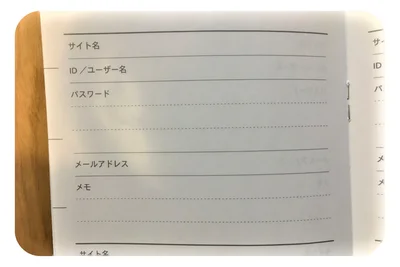 サイト名
ID／ユーザー名
パスワード
メールアドレス
メモ
サイト名
サ
ID
パ
メ
メ